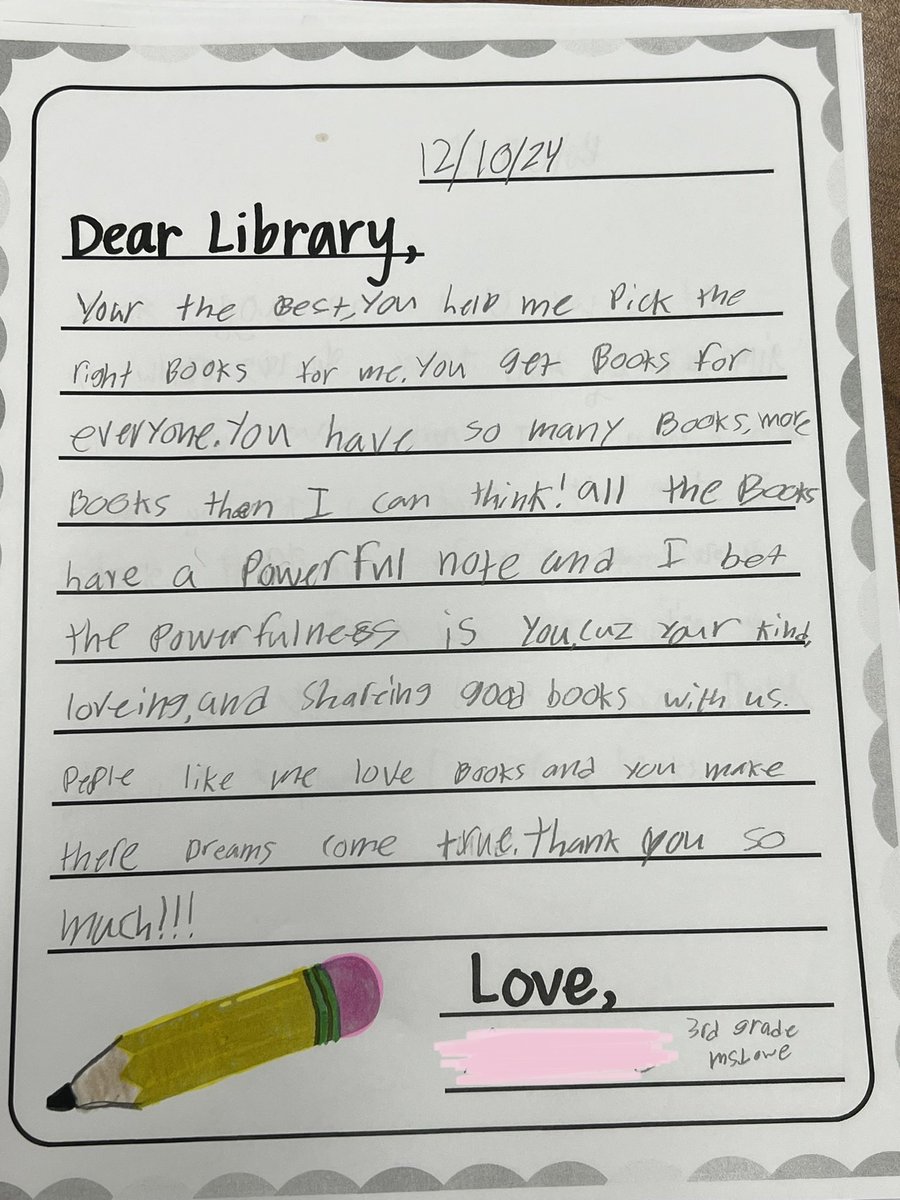 12/10/24
Dear Library,
Your the Best, You help me Pick the
right Books for me. You get Books for
everyone. You have so many Books, more
Books then I can think! all the Books
have a Powerful note and I bet
the Powerfulness is You, cuz Your kind,
loveing, and Shareing good books with us.
People like me love Books and you make
there Dreams come true. thank you so
much!!!
Love,
3rd grade
ms.Lowe